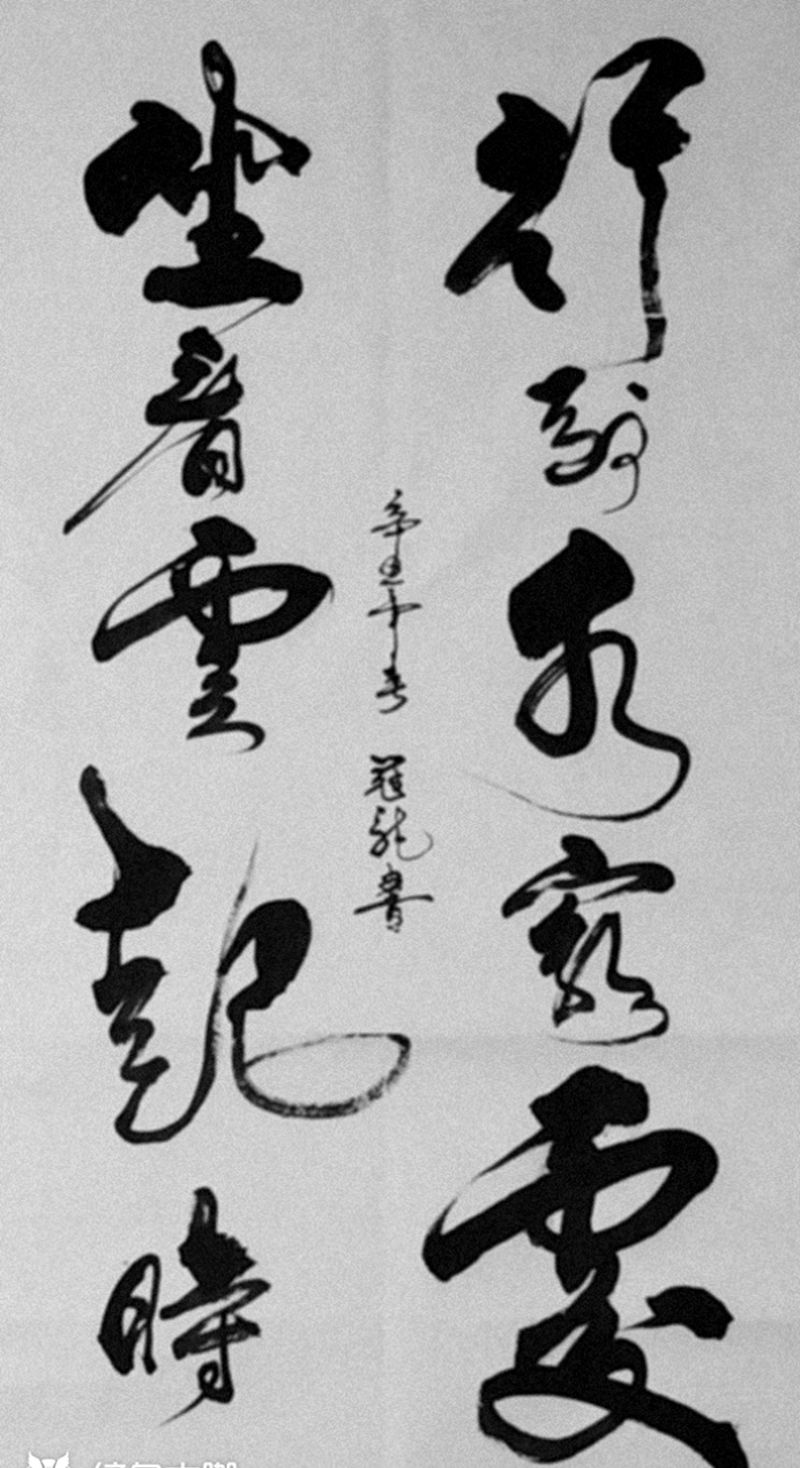 行到水窮處
坐看雲起時
辛丑年春 龍書